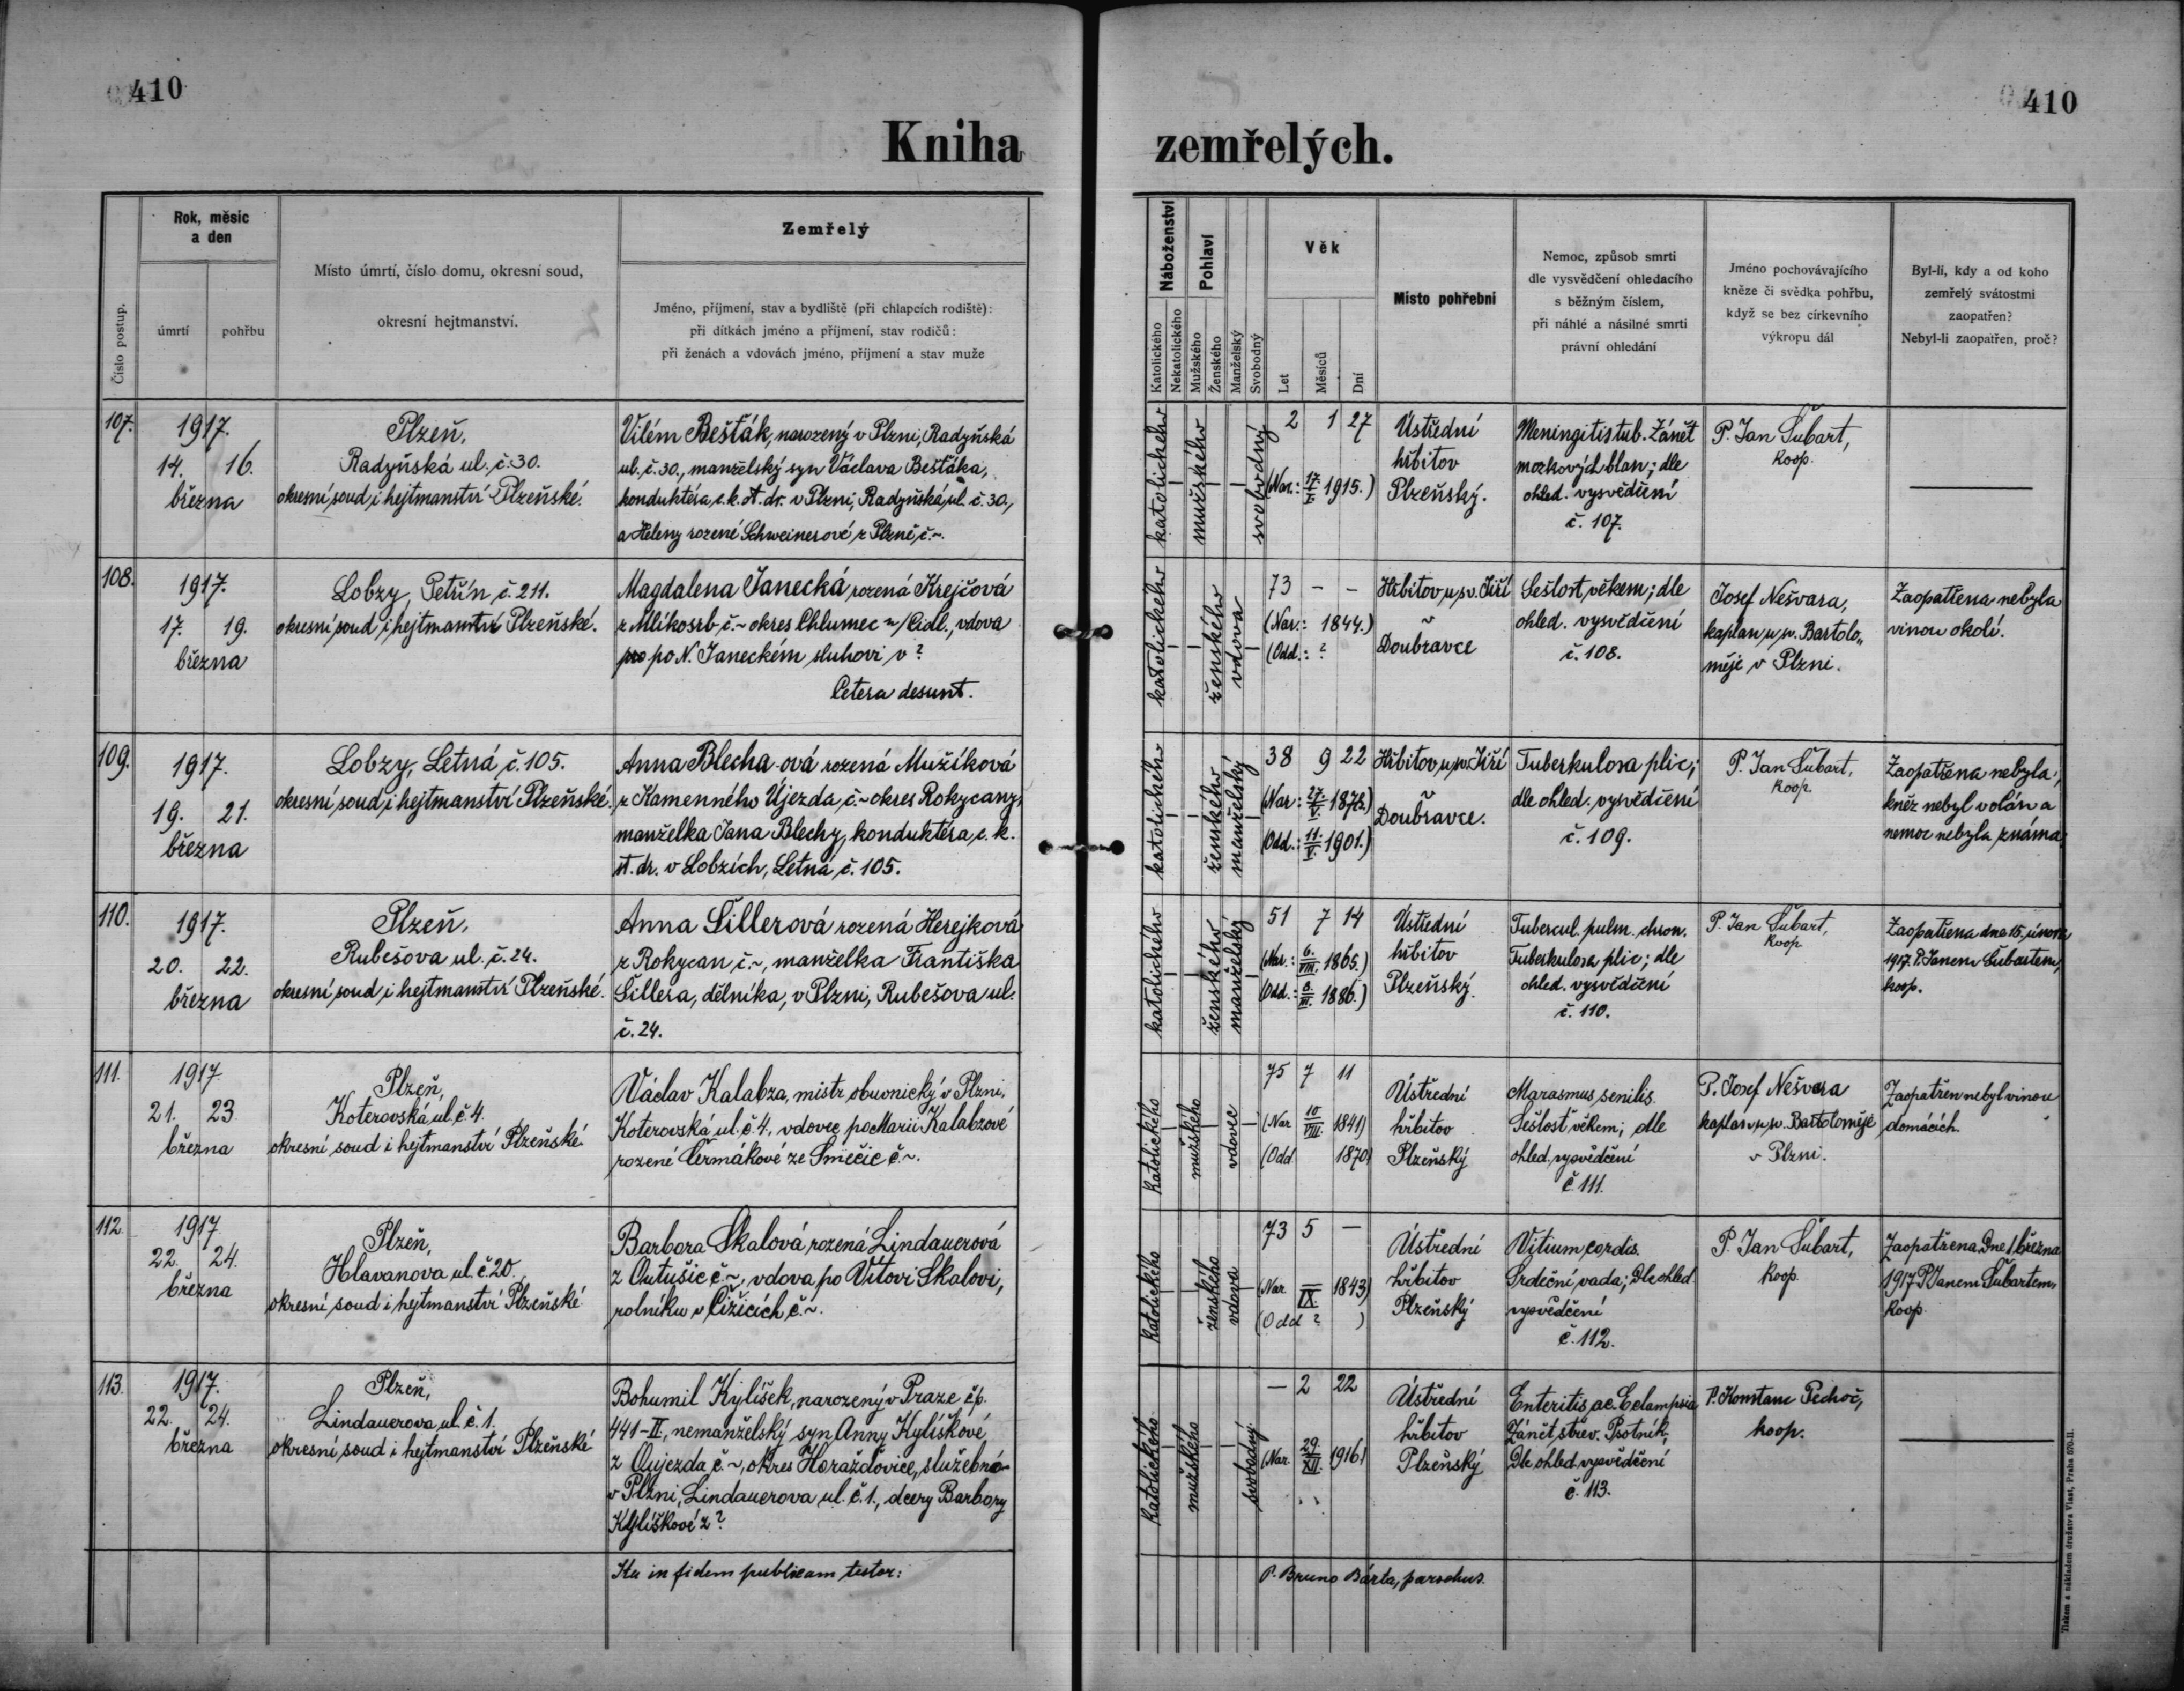 410
410
Kniha zemřelých.
Číslo postup.
Rok, měsíc
a den
úmrtí
pohřbu
Místo úmrtí, číslo domu, okresní soud,
okresní hejtmanství.
Zemřelý
Jméno, příjmení, stav a bydliště (při chlapcích rodiště):
při dítkách jméno a příjmení, stav rodičů:
při ženách a vdovách jméno, příjmení a stav muže
Náboženství
Katolického
Nekatolického
Pohlaví
Mužského
Ženského
Manželský
Svobodný
Věk
Let
Měsíců
Dní
Místo pohřební
Nemoc, způsob smrti
dle vysvědčení ohledacího
s běžným číslem,
při náhlé a násilné smrti
právní ohledání
Jméno pochovávajícího
kněze či svědka pohřbu,
když se bez církevního
výkropu dál
Byl-li, kdy a od koho
zemřelý svátostmi
zaopatřen?
Nebyl-li zaopatřen, proč?
107.
1917.
14. 16.
března
Plzeň,
Radyňská ul. č. 30.
okresní soud i hejtmanství Plzeňské.
Vilém Bešťák, narozený v Plzni, Radyňská
ul. č. 30., manželský syn Václava Bešťáka,
konduktéra c. k. st. dr. v Plzni, Radyňská ul. č. 30.,
a Heleny rozené Schweinerové z Plzně č. ~.
katolického
mužského
svobodný
2 1 27
(Nar.: 17./I. 1915.)
Ústřední
hřbitov
Plzeňský.
Meningitis tub. Zánět
mozkových blan; dle
ohled. vysvědčení
č. 107.
P. Jan Šubart,
koop.
108.
1917.
17. 19.
března
Lobzy, Petřín č. 211.
okresní soud i hejtmanství Plzeňské.
Magdalena Janecká rozená Krejčová
z Mlikosrb č. ~ okres Chlumec n/Cidl., vdova
pro po N. Janeckém sluhovi v ?
Cetera desunt.
katolického
ženského
vdova
73 - -
(Nar.: 1844.)
(Odd.: ?
Hřbitov u sv. Jiří
v
Doubravce
Sešlost věkem; dle
ohled. vysvědčení
č. 108.
Josef Nešvara,
kaplan u sv. Bartolo„
měje v Plzni.
Zaopatřena nebyla
vinou okolí.
109.
1917.
19. 21.
března
Lobzy, Letná č. 105.
okresní soud i hejtmanství Plzeňské.
Anna Blecha-ová rozená Mužíková
z Kamenného Újezda, č. ~ okres Rokycany,
manželka Jana Blechy, konduktéra c. k.
st. dr. v Lobzích, Letná č. 105.
katolického
ženského
manželský
38 9 22
(Nar.: 27./V. 1878.)
(Odd.: 11./V. 1901.)
Hřbitov u sv. Jiří
v
Doubravce.
Tuberkulosa plic;
dle ohled. vysvědčení
č. 109.
P. Jan Šubart,
koop.
Zaopatřena nebyla,
kněz nebyl volán a
nemoc nebyla známa.
110.
1917.
20. 22.
března
Plzeň,
Rubešova ul. č. 24.
okresní soud i hejtmanství Plzeňské.
Anna Šillerová rozená Herejková
z Rokycan č. ~, manželka Františka
Šillera, dělníka, v Plzni, Rubešova ul.
č. 24.
katolického
ženského
manželský
51 7 14
(Nar.: 6./VIII. 1865.)
(Odd.: 8./III. 1886.)
Ústřední
hřbitov
Plzeňský.
Tubercul. pulm. chron.
Tuberkulosa plic; dle
ohled. vysvědčení
č. 110.
P. Jan Šubart,
koop
Zaopatřena dne 15. února
1917. P. Janem Šubartem,
koop.
111.
1917
21. 23
března
Plzeň,
Koterovská ul. č. 4.
okresní soud i hejtmanství Plzeňské.
Václav Kalabza, mistr obuvnický v Plzni,
Koterovská ul. č. 4., vdovec po Marii Kalabzové
rozené Čermákové ze Smečic č. ~.
katolického
mužského
vdovec
75 7 11
(Nar. 10/VIII. 1841)
(Odd 1870)
Ústřední
hřbitov
Plzeňský
Marasmus senilis.
Sešlost věkem; dle
ohled. vysvědčení
č. 111.
P. Josef Nešvara
kaplan u sv. Bartoloměje
v Plzni.
Zaopatřen nebyl vinou
domácích.
112.
1917
22. 24.
března
Plzeň,
Hlavanova ul. č. 20.
okresní soud i hejtmanství Plzeňské
Barbora Skalová rozená Lindauerová
z Outušic č. ~, vdova po Vítovi Skalovi,
rolníku v Čižicích č. ~.
katolického
ženského
vdova
73 5 —
(Nar. —/IX. 1843)
(Odd ? )
Ústřední
hřbitov
Plzeňský
Vitium cordis.
Srdeční vada; Dle ohled.
vysvědčení
č. 112.
P. Jan Šubart,
koop.
Zaopatřena Dne 1. března
1917 P. Janem Šubartem
koop.
113.
1917.
22. 24.
března
Plzeň,
Lindauerova ul. č. 1.
okresní soud i hejtmanství Plzeňské
Bohumil Kylíšek, narozený v Praze čp.
441-II., nemanželský syn Anny Kylíškové,
z Oujezda č. ~, okres Horažďovice, služebné
v Plzni, Lindauerova ul. č. 1., dcery Barbory
Kylíškové z ?
katolického
mužského
svobodný.
— 2 22
(Nar. 29./XII. 1916)
Ústřední
hřbitov
Plzeňský
Enteritis ac. Eclampsia
Zánět střev. Psotník;
Dle ohled. vysvědčení
č. 113.
P. Konstanc Pechoč,
koop.
Ita in fidem publicam testor:
P. Bruno Bárta, parochus.
Tiskem a nákladem družstva Vlast, Praha 570-II.